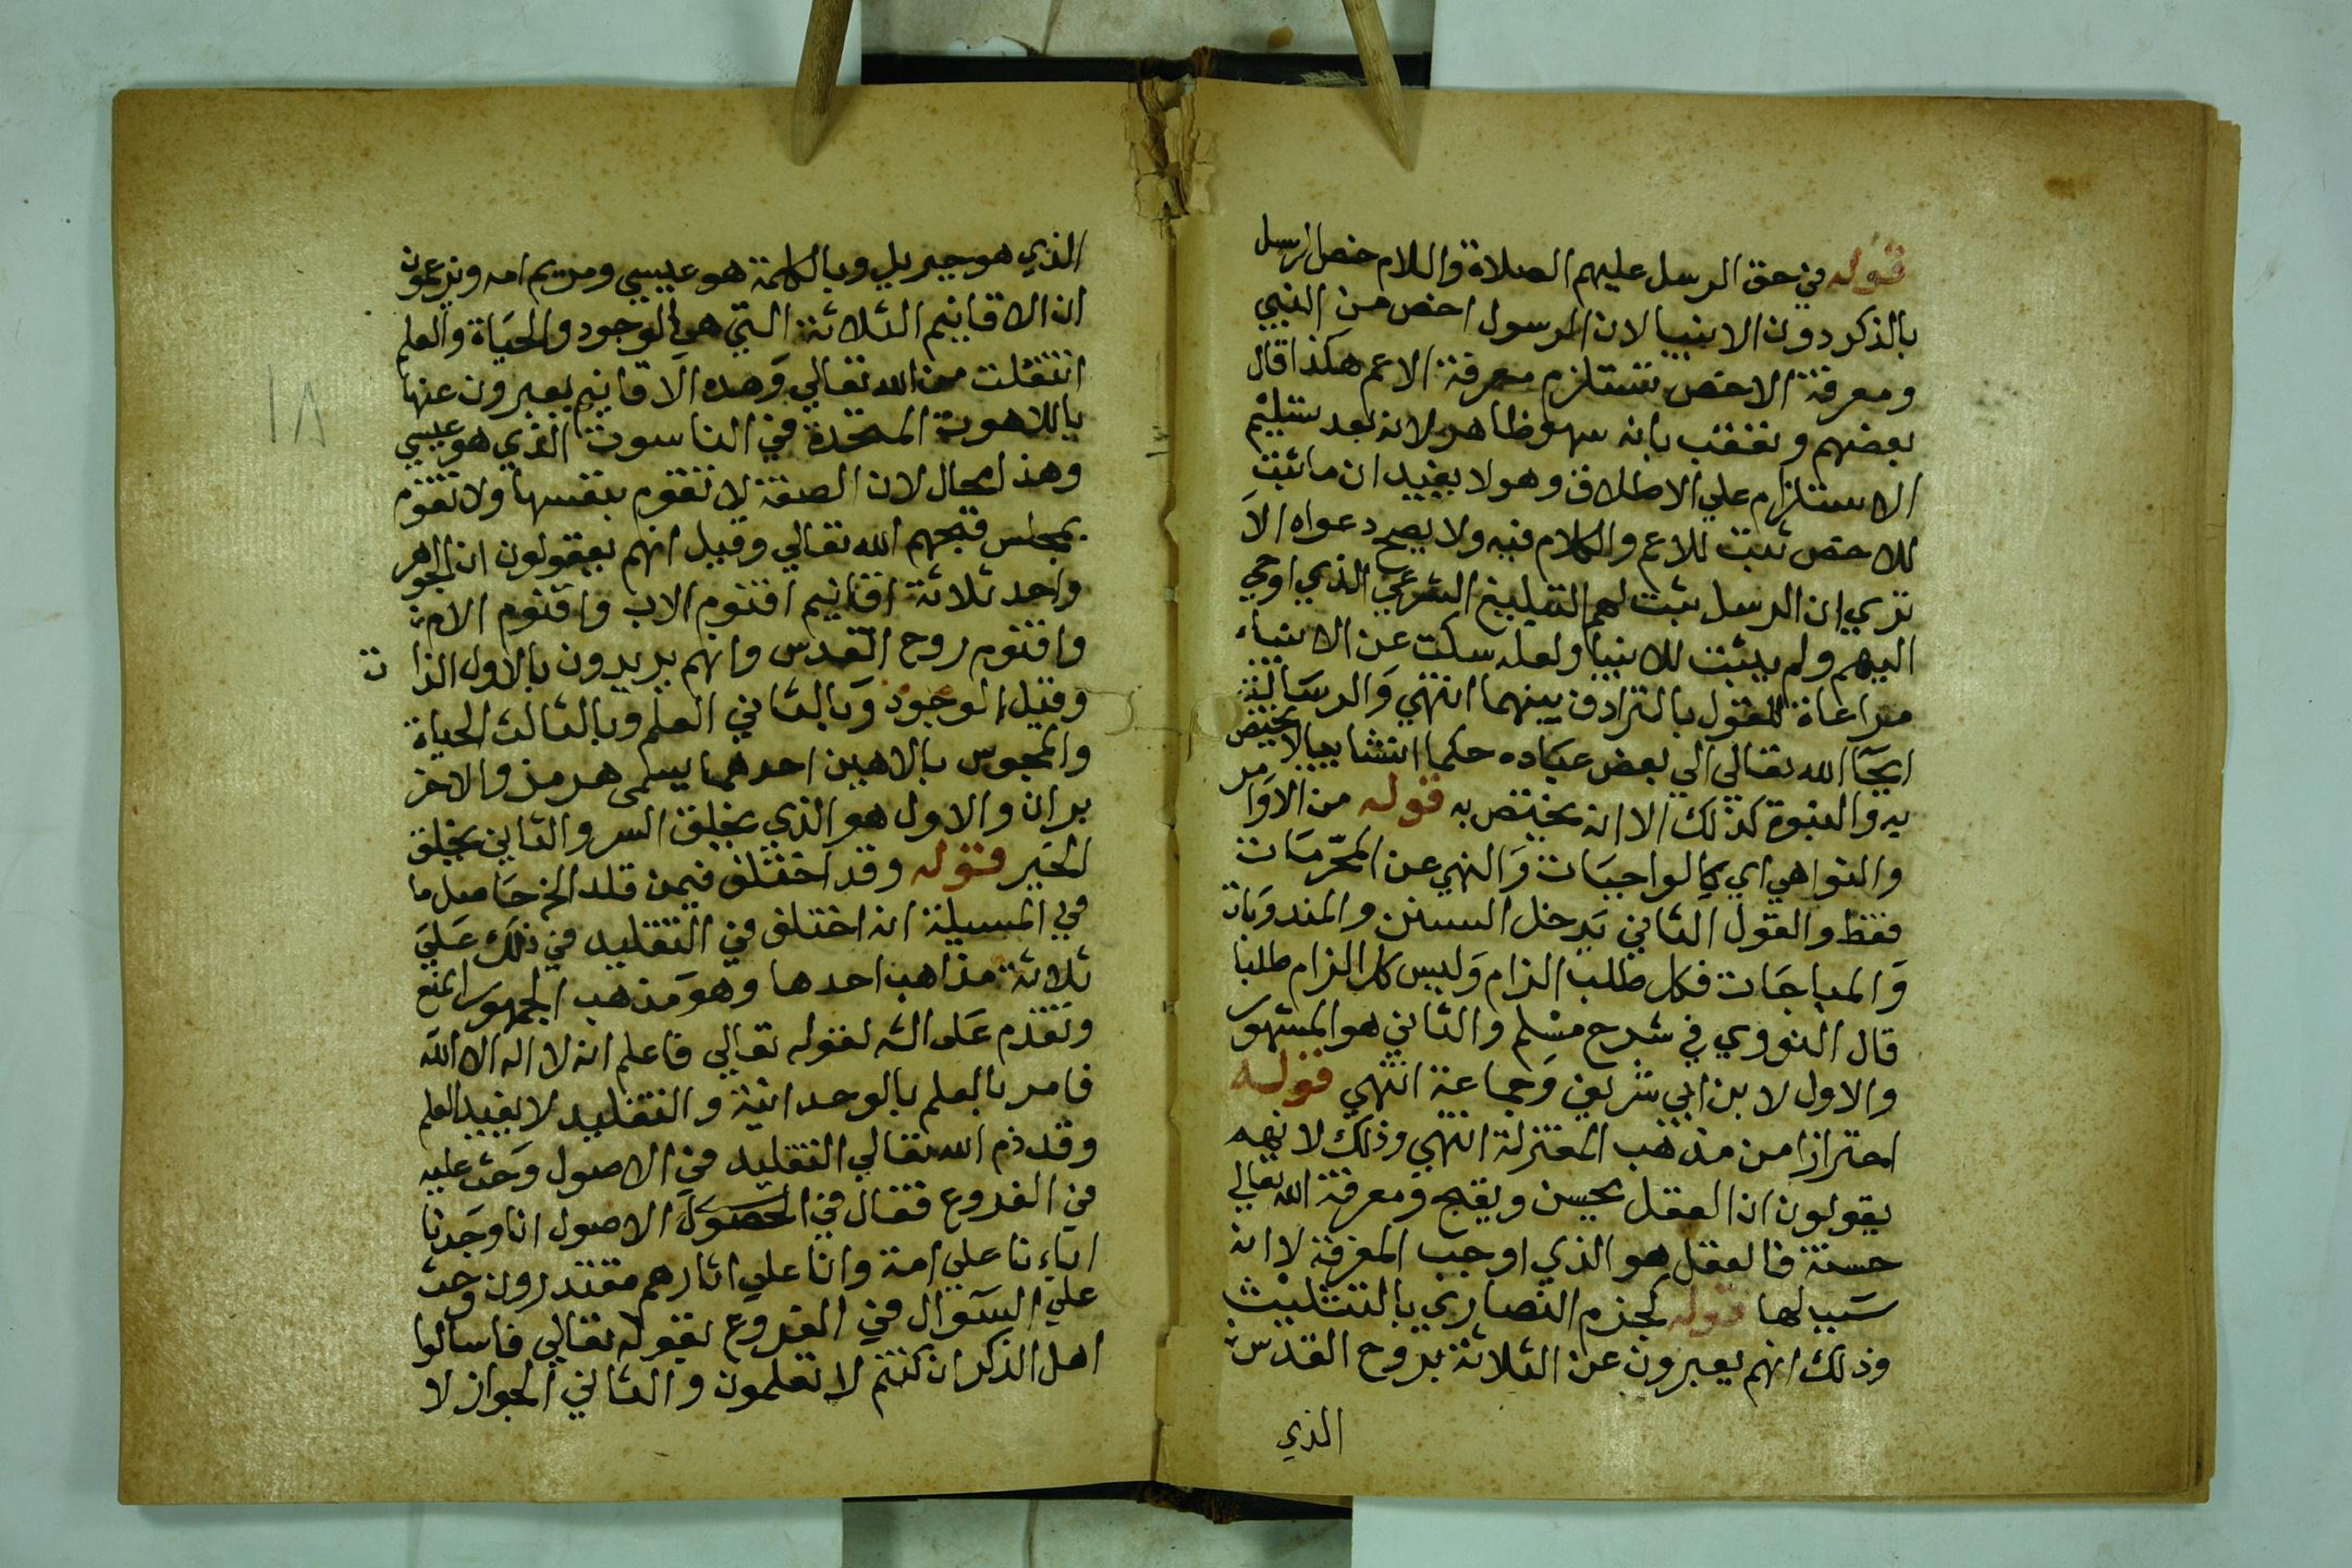 قوله في حق الرسل عليهم الصلاة والسلام خص الرسل
بالذكر دون الانبيا لان الرسول اخص من النبي
ومعرفة الاخص تستلزم معرفة الاعم هكذا قال
بعضهم وتعقب بانه سهو ظاهر لانه بعد تسليم
الاستلزام علي الاطلاق وهو لا يفيد ان ما ثبت
للاخص ثبت للاعم والكلام فيه ولا يصح دعواه الا
تري ان الرسل ثبت لهم التبليغ الشرعي الذي اوحي
اليهم ولم يثبت للانبيا ولعله سكت عن الانبياء
مراعاة للقول بالترادف بينهما انتهي والرسالة
ايحا الله تعالي الي بعض عباده حكما انشايا لا يختص
به والنبوة كذلك الا انه يختص به قوله من الاوامر
والنواهي اي كالواجبات والنهي عن المحرمات
فقط والقول الثاني يدخل السنن والمندوبات
والمباحات فكل طلب الزام وليس كل الزام طلبا
قال النووي في شرح مسلم والثاني هو المشهور
والاول لابن ابي شريف وجماعة انتهي قوله
احترازا من مذهب المعتزلة انتهي وذلك لانهم
يقولون ان العقل يحسن ويقبح ومعرفة الله تعالي
حسنة فالعقل هو الذي اوجب المعرفة لا انه
سبب لها قوله كجزم النصاري بالتثليث
وذلك انهم يعبرون عن الثلاثة بروح القدس
الذي
الذي هو جبريل وبالكلمة هو عيسي ومريم امه ويزعمون
ان الاقانيم الثلاثة التي هي الوجود والحياة والعلم
انتقلت من الله تعالي وهذه الاقانيم يعبرون عنها
باللاهوت المتحدة في الناسوت الذي هو عيسي
١٨
وهذا محال لان الصفة لا تقوم بنفسها ولا تقوم
قبحهم الله تعالي وقيل انهم يقولون ان الجوهر
واحد ثلاثة اقانيم اقنوم الاب واقنوم الام
واقنوم روح القدس وانهم يريدون بالاول الذات
وقيل الوجود وبالثاني العلم وبالثالث الحياة
والمجوس بالاهين احدهما يسمي هرمز والاخر
بران والاول هو الذي يخلق الشر والثاني يخلق
الخير قوله وقد اختلف فيمن قلد الخ حاصل ما
في المسيلة انه اختلف في التقليد في ذلك علي
ثلاثة مذاهب احدها وهو مذهب الجمهور المنع
وتقدم علي لقوله تعالي فاعلم انه لا اله الا الله
فامر بالعلم بالوحدانية والتقليد لا يفيد العلم
وقد ذم الله تعالي التقليد في الاصول وحث عليه
في الفروع فقال في الاصول انا وجدنا
اباءنا علي امة وانا علي اثارهم مقتدون وحث
علي السؤال في الفروع بقوله تعالي فاسالوا
اهل الذكر ان كنتم لا تعلمون والثاني الجواز لا